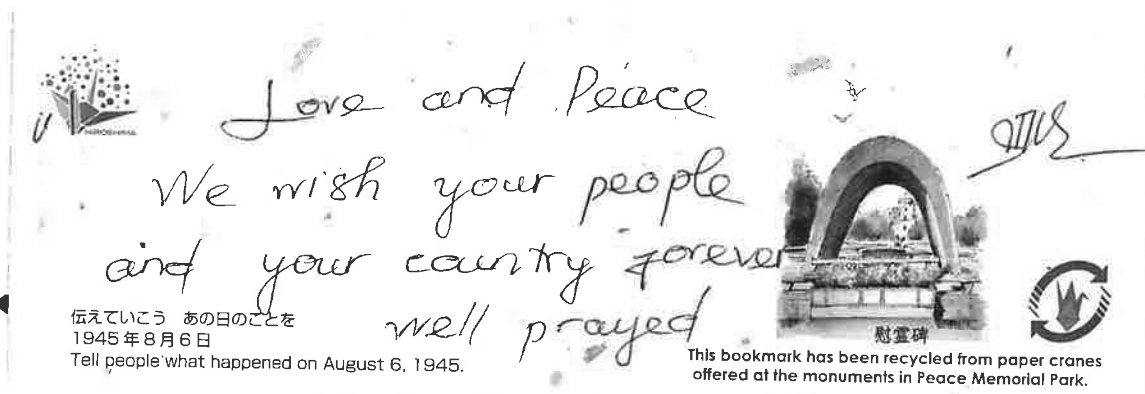 HIROSHIMA
Love and Peace
We wish your people
and your country forever
well prayed
伝えていこう あの日のことを
1945年8月6日
Tell people what happened on August 6, 1945.
慰霊碑
This bookmark has been recycled from paper cranes
offered at the monuments in Peace Memorial Park.